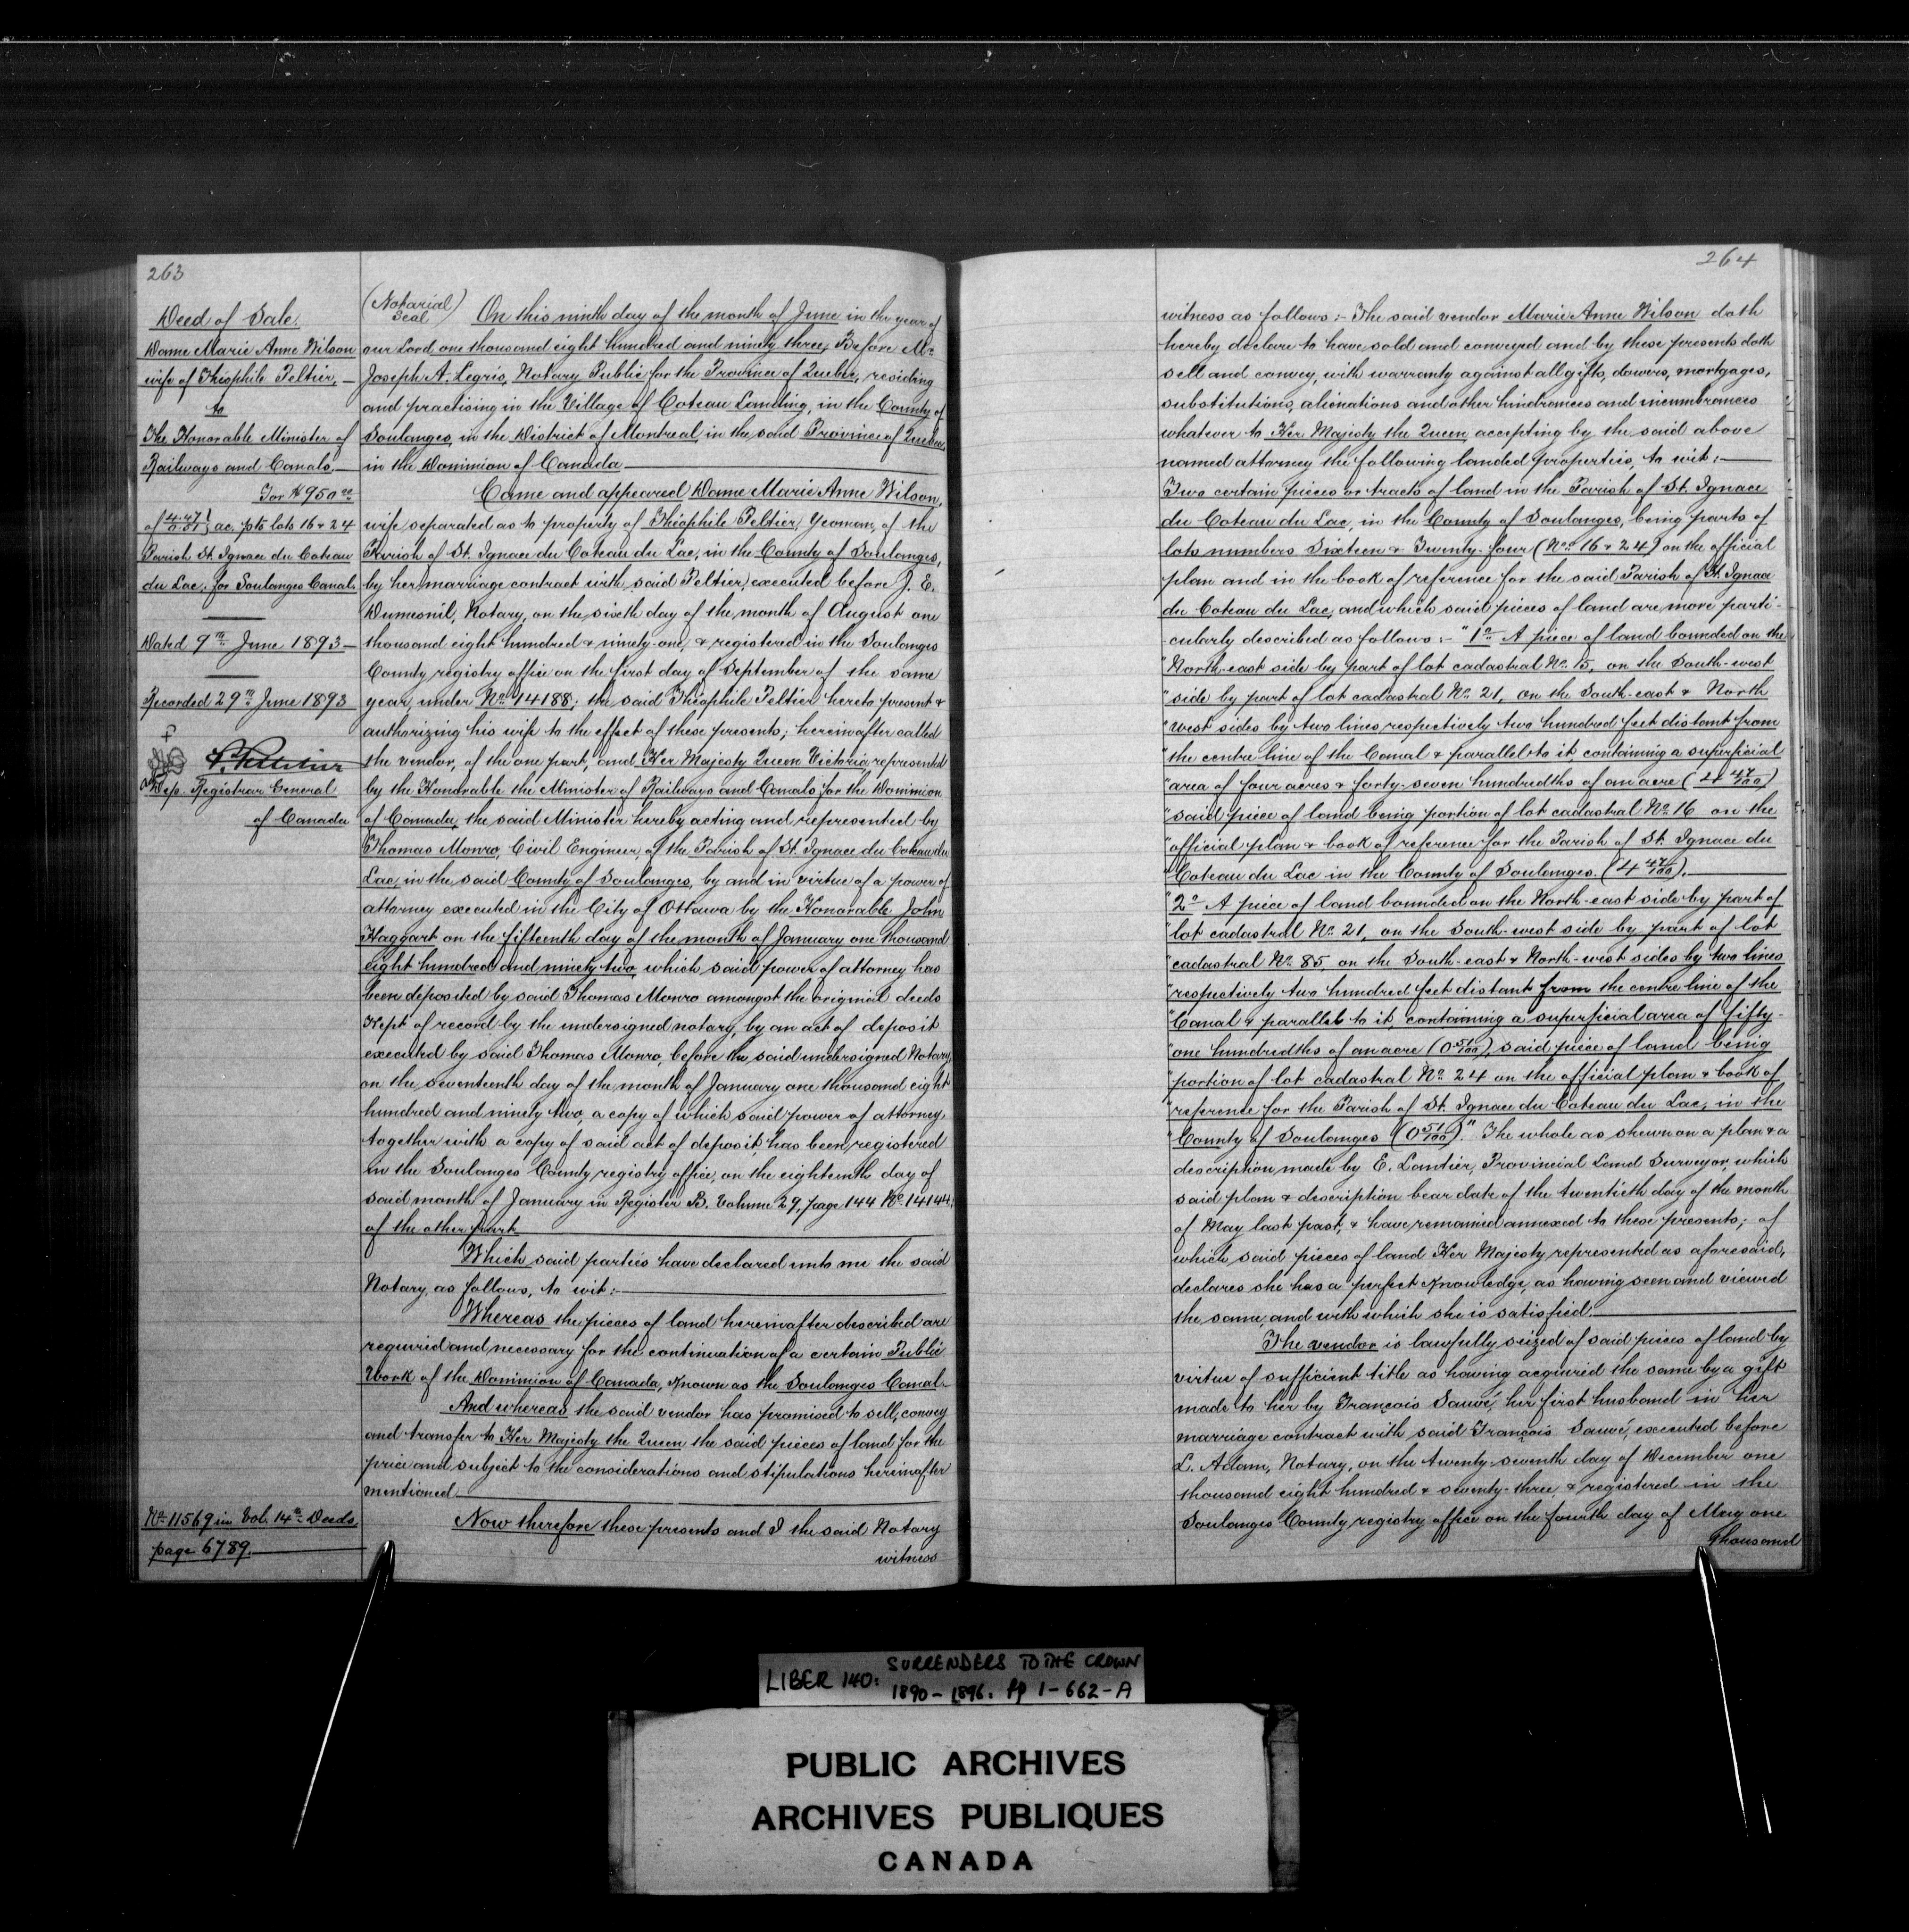 263
Deed of Sale.
Dame Marie Anne Wilson
wife of Théophile Peltier, —
to
The Honorable Minister of
Railways and Canals.—
For $950 00
of 4.47 / 0.51 } ac. pts lots 16 & 24
Parish St. Ignace du Coteau
du Lac, for Soulanges Canal.
Dated 9th June 1893—
Recorded 29th June 1893
Dep. Registrar General
of Canada
No 11569 in Vol. 14 Deeds
page 6789.
(Notarial Seal) On this ninth day of the month of June in the year of
our Lord one thousand eight hundred and ninety three, Before Mr
Joseph A. Legris, Notary Public for the Province of Quebec, residing
and practising in the Village of Coteau Landing, in the County of
Soulanges, in the District of Montreal in the said Province of Quebec
in the Dominion of Canada
Came and appeared Dame Marie Anne Wilson,
wife separated as to property of Théophile Peltier, Yeoman, of the
Parish of St. Ignace du Coteau du Lac, in the County of Soulanges,
by her marriage contract with said Peltier, executed before J. E.
Dumesnil, Notary, on the sixth day of the month of August one
thousand eight hundred & ninety-one, & registered in the Soulanges
County registry office on the first day of September of the same
year, under No 14188; the said Théophile Peltier hereto present &
authorizing his wife to the effect of these presents; hereinafter called
the vendor, of the one part, and Her Majesty Queen Victoria represented
by the Honorable the Minister of Railways and Canals for the Dominion
of Canada, the said Minister hereby acting and represented by
Thomas Monro, Civil Engineer, of the Parish of St. Ignace du Coteau du
Lac, in the said County of Soulanges, by and in virtue of a power of
attorney executed in the City of Ottawa by the Honorable John
Haggart on the fifteenth day of the month of January one thousand
eight hundred and ninety two, which said power of attorney has
been deposited by said Thomas Monro amongst the original deeds
Kept of record by the undersigned notary, by an act of deposit
executed by said Thomas Monro, before the said undersigned Notary,
on the seventeenth day of the month of January one thousand eight
hundred and ninety two, a copy of which said power of attorney,
together with a copy of said act of deposit, has been registered
in the Soulanges County registry office, on the eighteenth day of
said month of January in Register B. Volume 29, page 144 No 14144;
of the other part
Which said parties have declared unto me the said
Notary, as follows, to wit:—
Whereas the pieces of land hereinafter described are
required and necessary for the continuation of a certain Public
Work of the Dominion of Canada, Known as the Soulanges Canal.
And whereas the said vendor has promised to sell, convey
and transfer to Her Majesty the Queen the said pieces of land for the
price and subject to the considerations and stipulations hereinafter
mentioned
Now therefore these presents and I the said Notary
witness
264
witness as follows:- The said vendor Marie Anne Wilson doth
hereby declare to have sold and conveyed and by these presents doth
sell and convey, with warranty against all gifts, dowers, mortgages,
substitutions, alienations and other hindrances and incumbrances
whatever to Her Majesty the Queen accepting by the said above
named attorney the following landed properties, to wit:—
Two certain pieces or tracts of land in the Parish of St. Ignace
du Coteau du Lac, in the County of Soulanges, being parts of
lots numbers Sixteen & Twenty-four (Nos 16 & 24) on the official
plan and in the book of reference for the said Parish of St. Ignace
du Coteau du Lac, and which said pieces of land are more parti-
cularly described as follows:- "1o A piece of land bounded on the
"North-east side by part of lot cadastral No 15, on the South-west
"side by part of lot cadastral No 21, on the South-east & North
"west sides by two lines respectively two hundred feet distant from
"the centre line of the Canal & parallel to it, containing a superficial
"area of four acres & forty-seven hundredths of an acre (4 47/100)
"said piece of land being portion of lot cadastral No 16 on the
"official plan & book of reference for the Parish of St. Ignace du
"Coteau du Lac in the County of Soulanges. (4 47/100).
"2o A piece of land bounded on the North-east side by part of
"lot cadastral No 21, on the South-west side by part of lot
"cadastral No 85, on the South-east & North-west sides by two lines
"respectively two hundred feet distant from the centre line of the
"Canal & parallel to it, containing a superficial area of fifty-
"one hundredths of an acre (0 51/100), said piece of land being
"portion of lot cadastral No 24 on the official plan & book of
"reference for the Parish of St. Ignace du Coteau du Lac, in the
"County of Soulanges (0 51/100)." The whole as shewn on a plan & a
description made by E. Lantier, Provincial Land Surveyor, which
said plan & description bear date of the twentieth day of the month
of May last past, & have remained annexed to these presents; of
which said pieces of land Her Majesty represented as aforesaid,
declares she has a perfect Knowledge, as having seen and viewed
the same, and with which she is satisfied.
The vendor is lawfully seized of said pieces of land by
virtue of sufficient title as having acquired the same by a gift
made to her by François Sauvé, her first husband in her
marriage contract with said François Sauvé, executed before
L. Adam, Notary, on the twenty-seventh day of December one
thousand eight hundred & seventy-three & registered in the
Soulanges County registry office on the fourth day of May one
thousand
LIBER 140: SURRENDERS TO THE CROWN
1890-1896. pp 1-662-A
PUBLIC ARCHIVES
ARCHIVES PUBLIQUES
CANADA